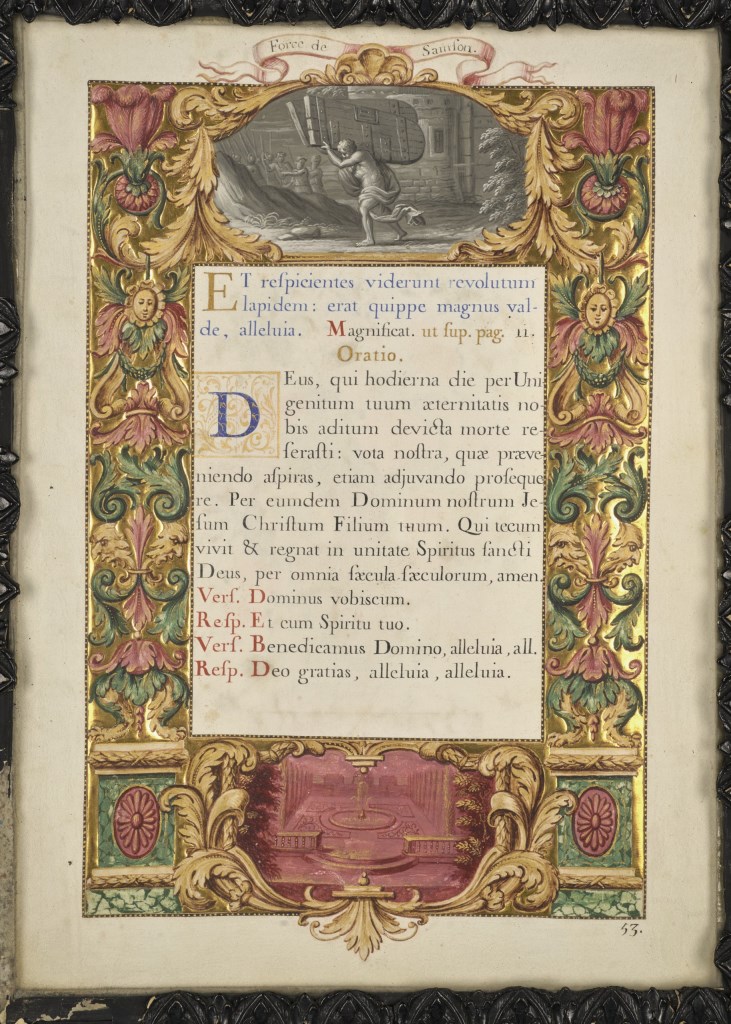 Force de Samson.
ET reſpicientes viderunt revolutum
lapidem: erat quippe magnus val-
de, alleluia. Magnificat. ut ſup. pag. 11.
Oratio.
DEus, qui hodierna die per Uni
genitum tuum æternitatis no-
bis aditum devicta morte re-
ſeraſti: vota noſtra, quæ præve-
niendo aſpiras, etiam adjuvando proſeque
re. Per eumdem Dominum noſtrum Je-
ſum Chriſtum Filium tuum. Qui tecum
vivit & regnat in unitate Spiritus ſancti
Deus, per omnia ſæcula ſæculorum, amen.
Verſ. Dominus vobiscum.
Reſp. Et cum Spiritu tuo.
Verſ. Benedicamus Domino, alleluia, all.
Reſp. Deo gratias, alleluia, alleluia.
53.